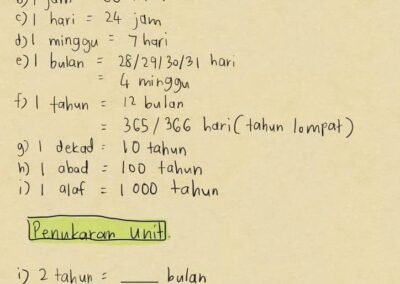 c) 1 hari = 24 jam
d) 1 minggu = 7 hari
e) 1 bulan = 28/29/30/31 hari
= 4 minggu
f) 1 tahun = 12 bulan
= 365/366 hari (tahun lompat)
g) 1 dekad = 10 tahun
h) 1 abad = 100 tahun
i) 1 alaf = 1 000 tahun
Penukaran Unit.
i) 2 tahun = ____ bulan